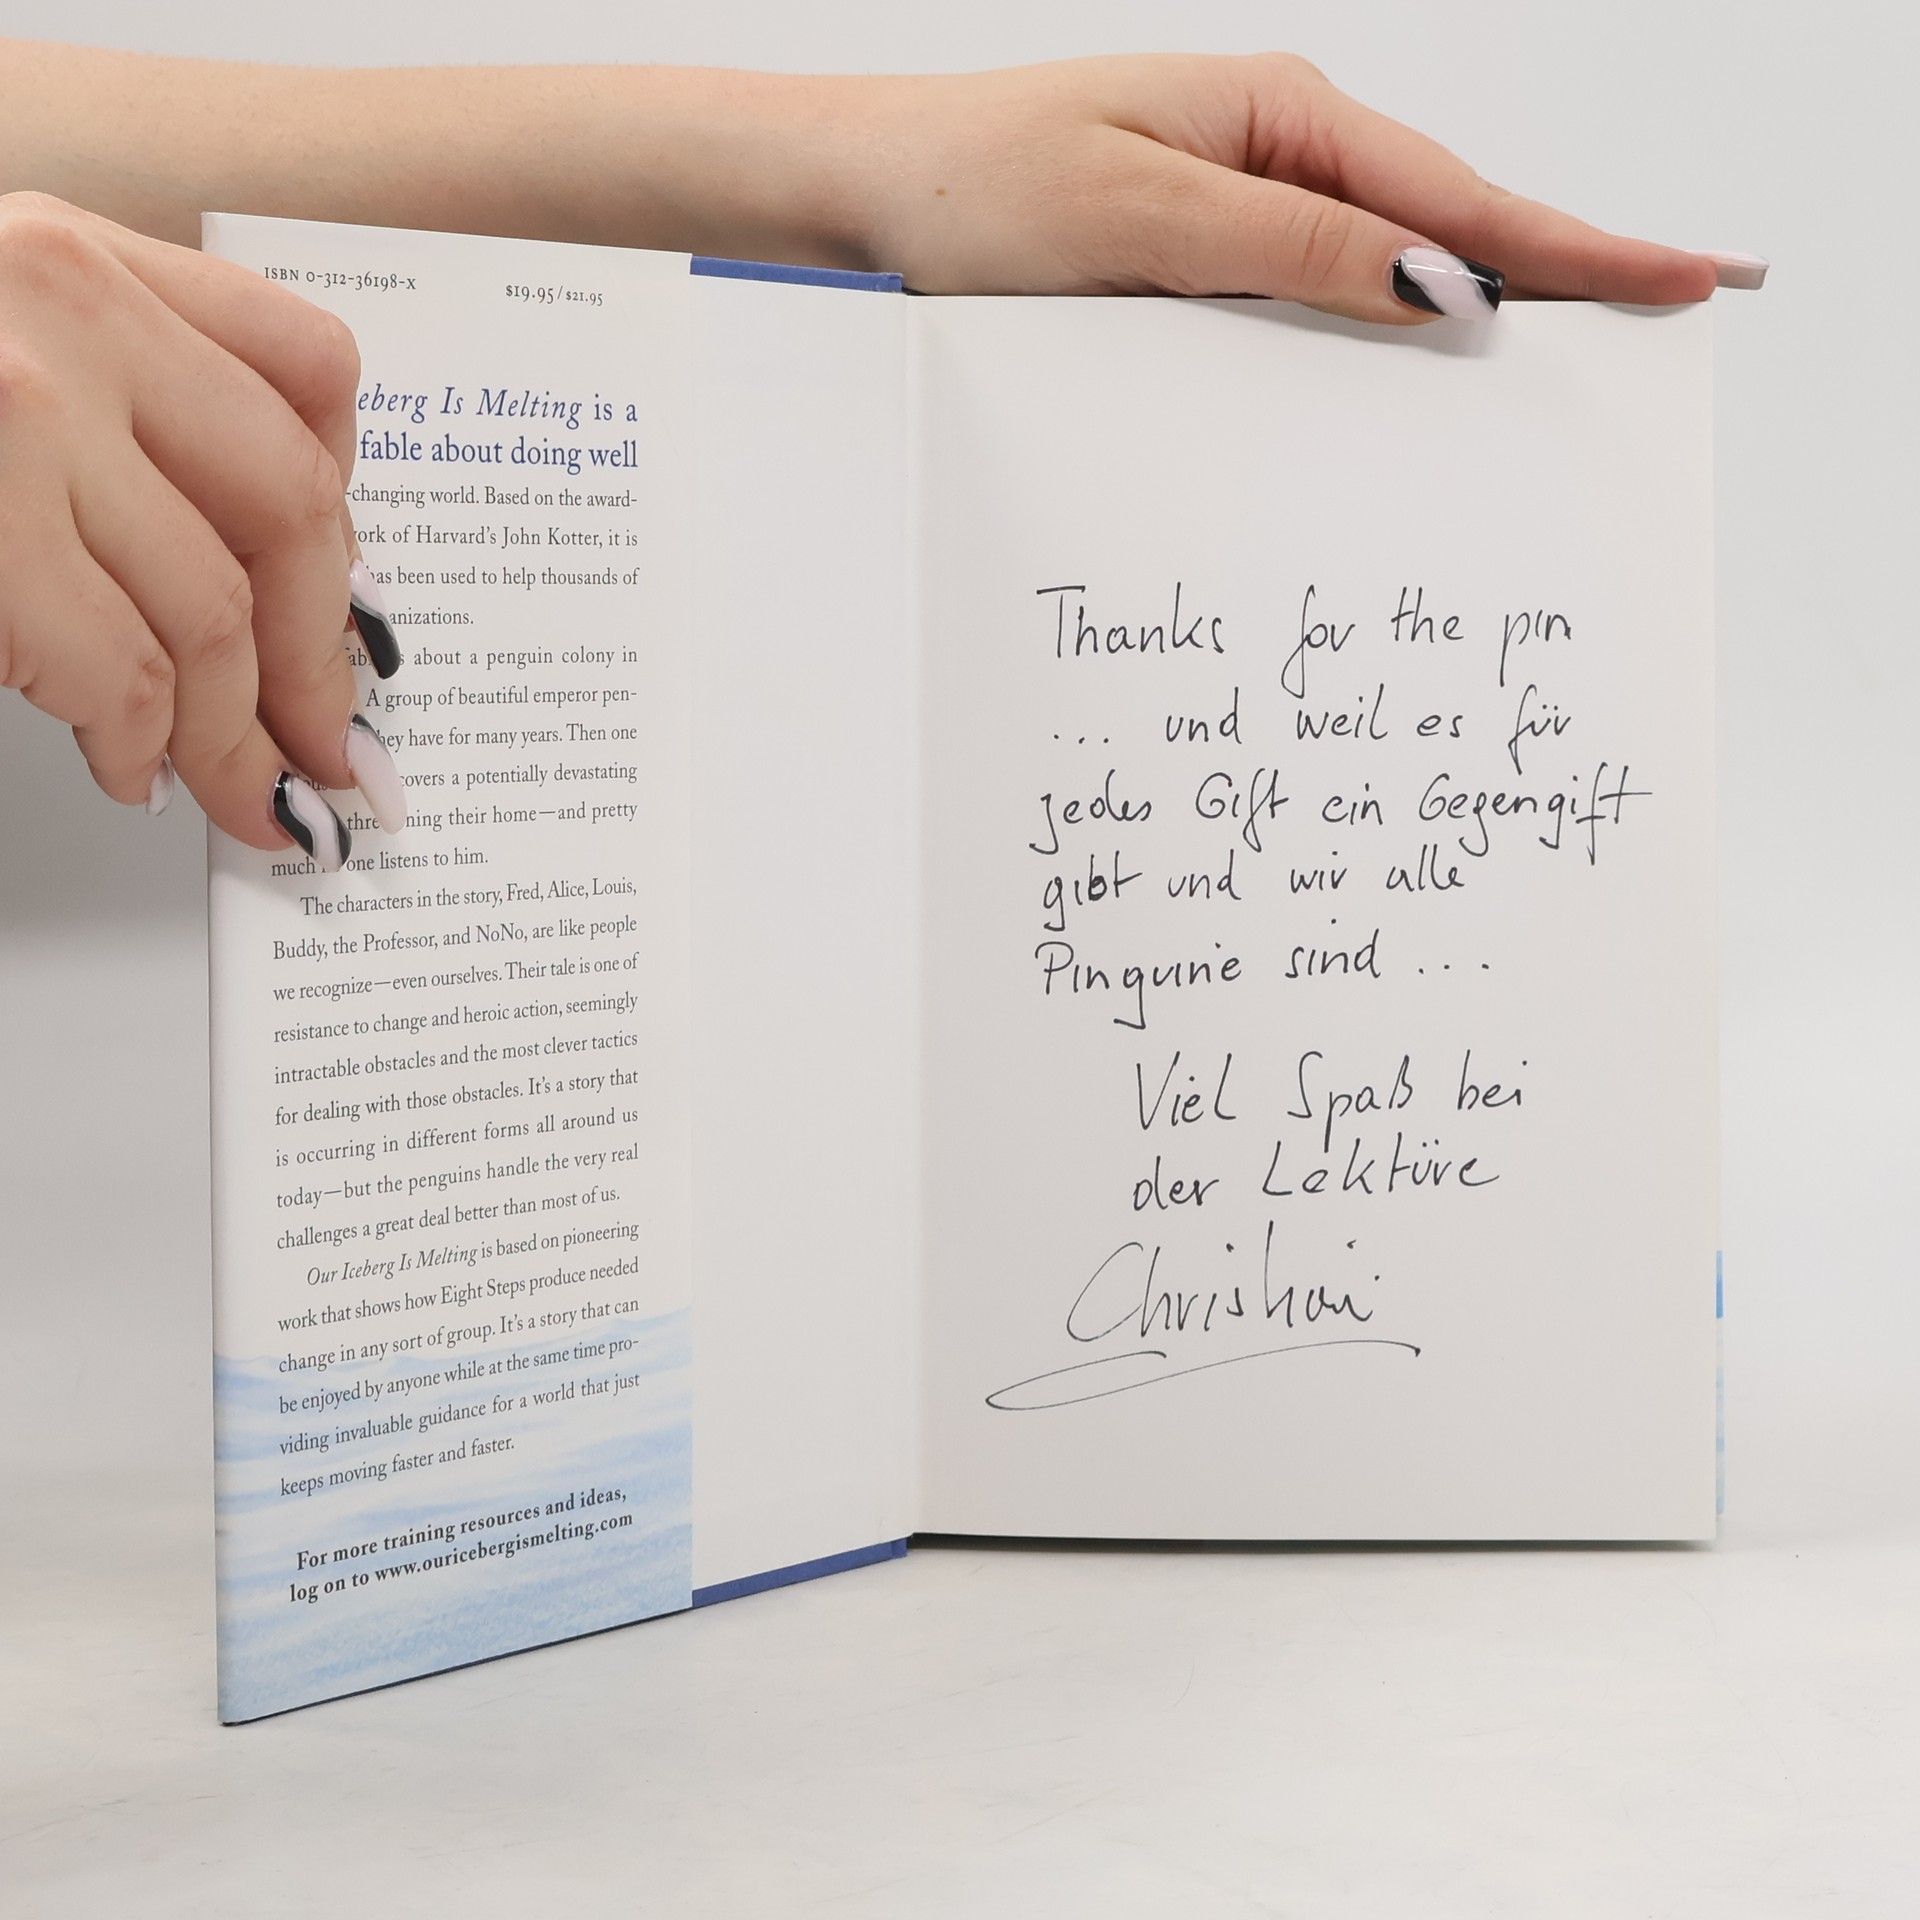 ISBN 0-312-36198-X
$19.95/$21.95
eberg Is Melting is a
fable about doing well
-changing world. Based on the award-
ork of Harvard's John Kotter, it is
has been used to help thousands of
anizations.
about a penguin colony in
A group of beautiful emperor pen-
they have for many years. Then one
covers a potentially devastating
thre ning their home—and pretty
much one listens to him.
The characters in the story, Fred, Alice, Louis,
Buddy, the Professor, and NoNo, are like people
we recognize—even ourselves. Their tale is one of
resistance to change and heroic action, seemingly
intractable obstacles and the most clever tactics
for dealing with those obstacles. It's a story that
is occurring in different forms all around us
today—but the penguins handle the very real
challenges a great deal better than most of us.
Our Iceberg Is Melting is based on pioneering
work that shows how Eight Steps produce needed
change in any sort of group. It's a story that can
be enjoyed by anyone while at the same time pro-
viding invaluable guidance for a world that just
keeps moving faster and faster.
For more training resources and ideas,
log on to www.ouricebergismelting.com
Thanks for the pin
... und weil es für
jedes Gift ein Gegengift
gibt und wir alle
Pinguine sind ...
Viel Spaß bei
der Lektüre
Christian